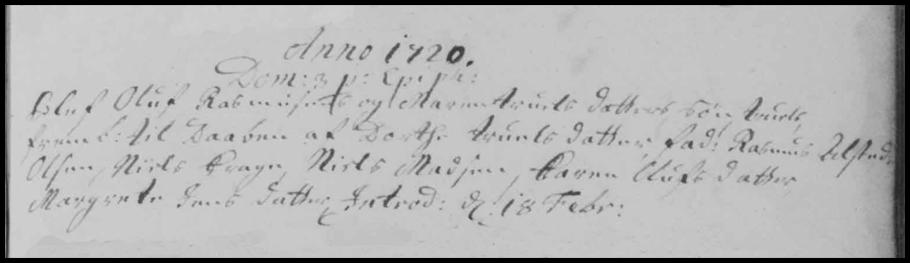 Anno 1720.
Dom: 3 p: Epiph:
blef Oluf Rasmusens og Maren truels datters søn truels,
fremb: til Daaben af Dorthe truels datter, fad: Rasmus
Olsen, Niels Krage, Niels Madsen, Karen Olufs datter,
Margrete Jens datter, Introd: d: 18 Febr: